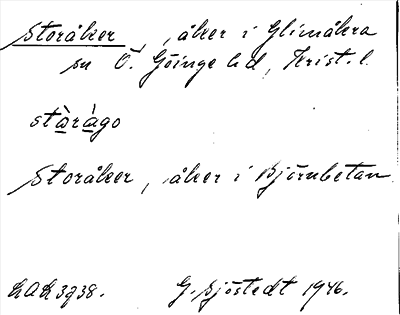 Storåker, åker i Glimåkra
sn Ö. Göinge hd, Krist. l.
stàrágo
Storåker, åker i Björnbetan
LAL 3938. G. Sjöstedt 1946.